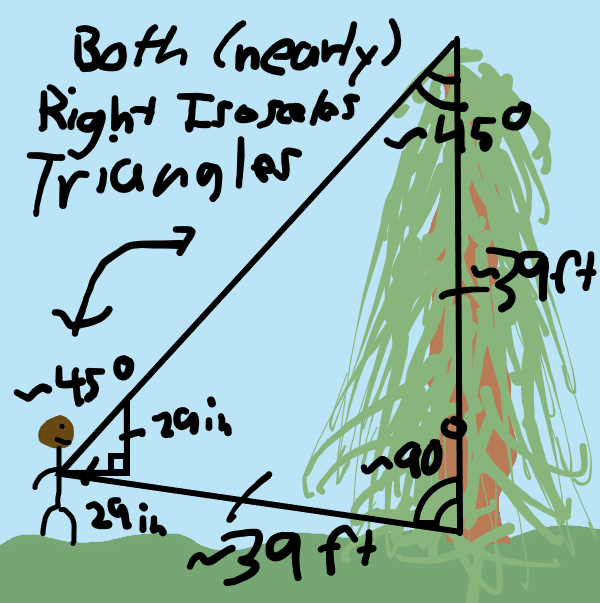 Both (nearly)
Right Isoseles
Triangles
~45°
~39ft
~45°
29in
~90°
29in
~39ft